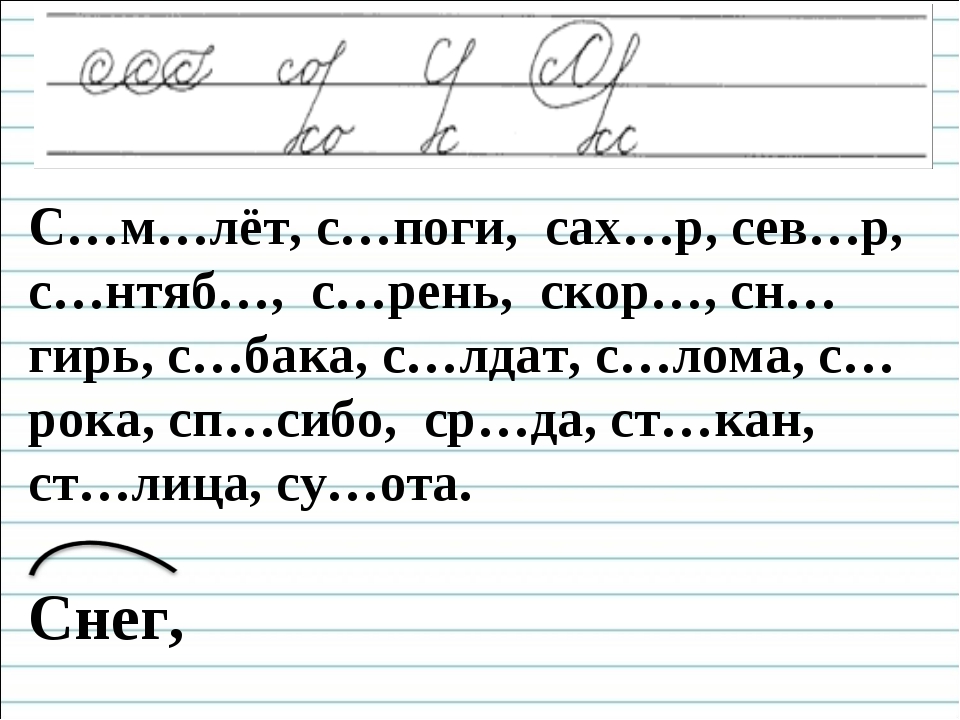 ссс со С С
со с сс
С…м…лёт, с…поги, сах…р, сев…р,
с…нтяб…, с…рень, скор…, сн…
гирь, с…бака, с…лдат, с…лома, с…
рока, сп…сибо, ср…да, ст…кан,
ст…лица, су…ота.
Снег,